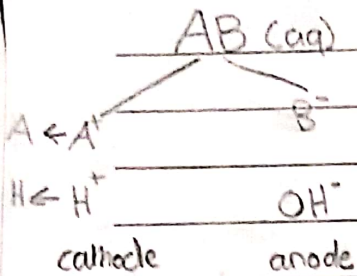 AB (aq)
A ← A⁺ B⁻
H ← H⁺ OH⁻
cathode anode